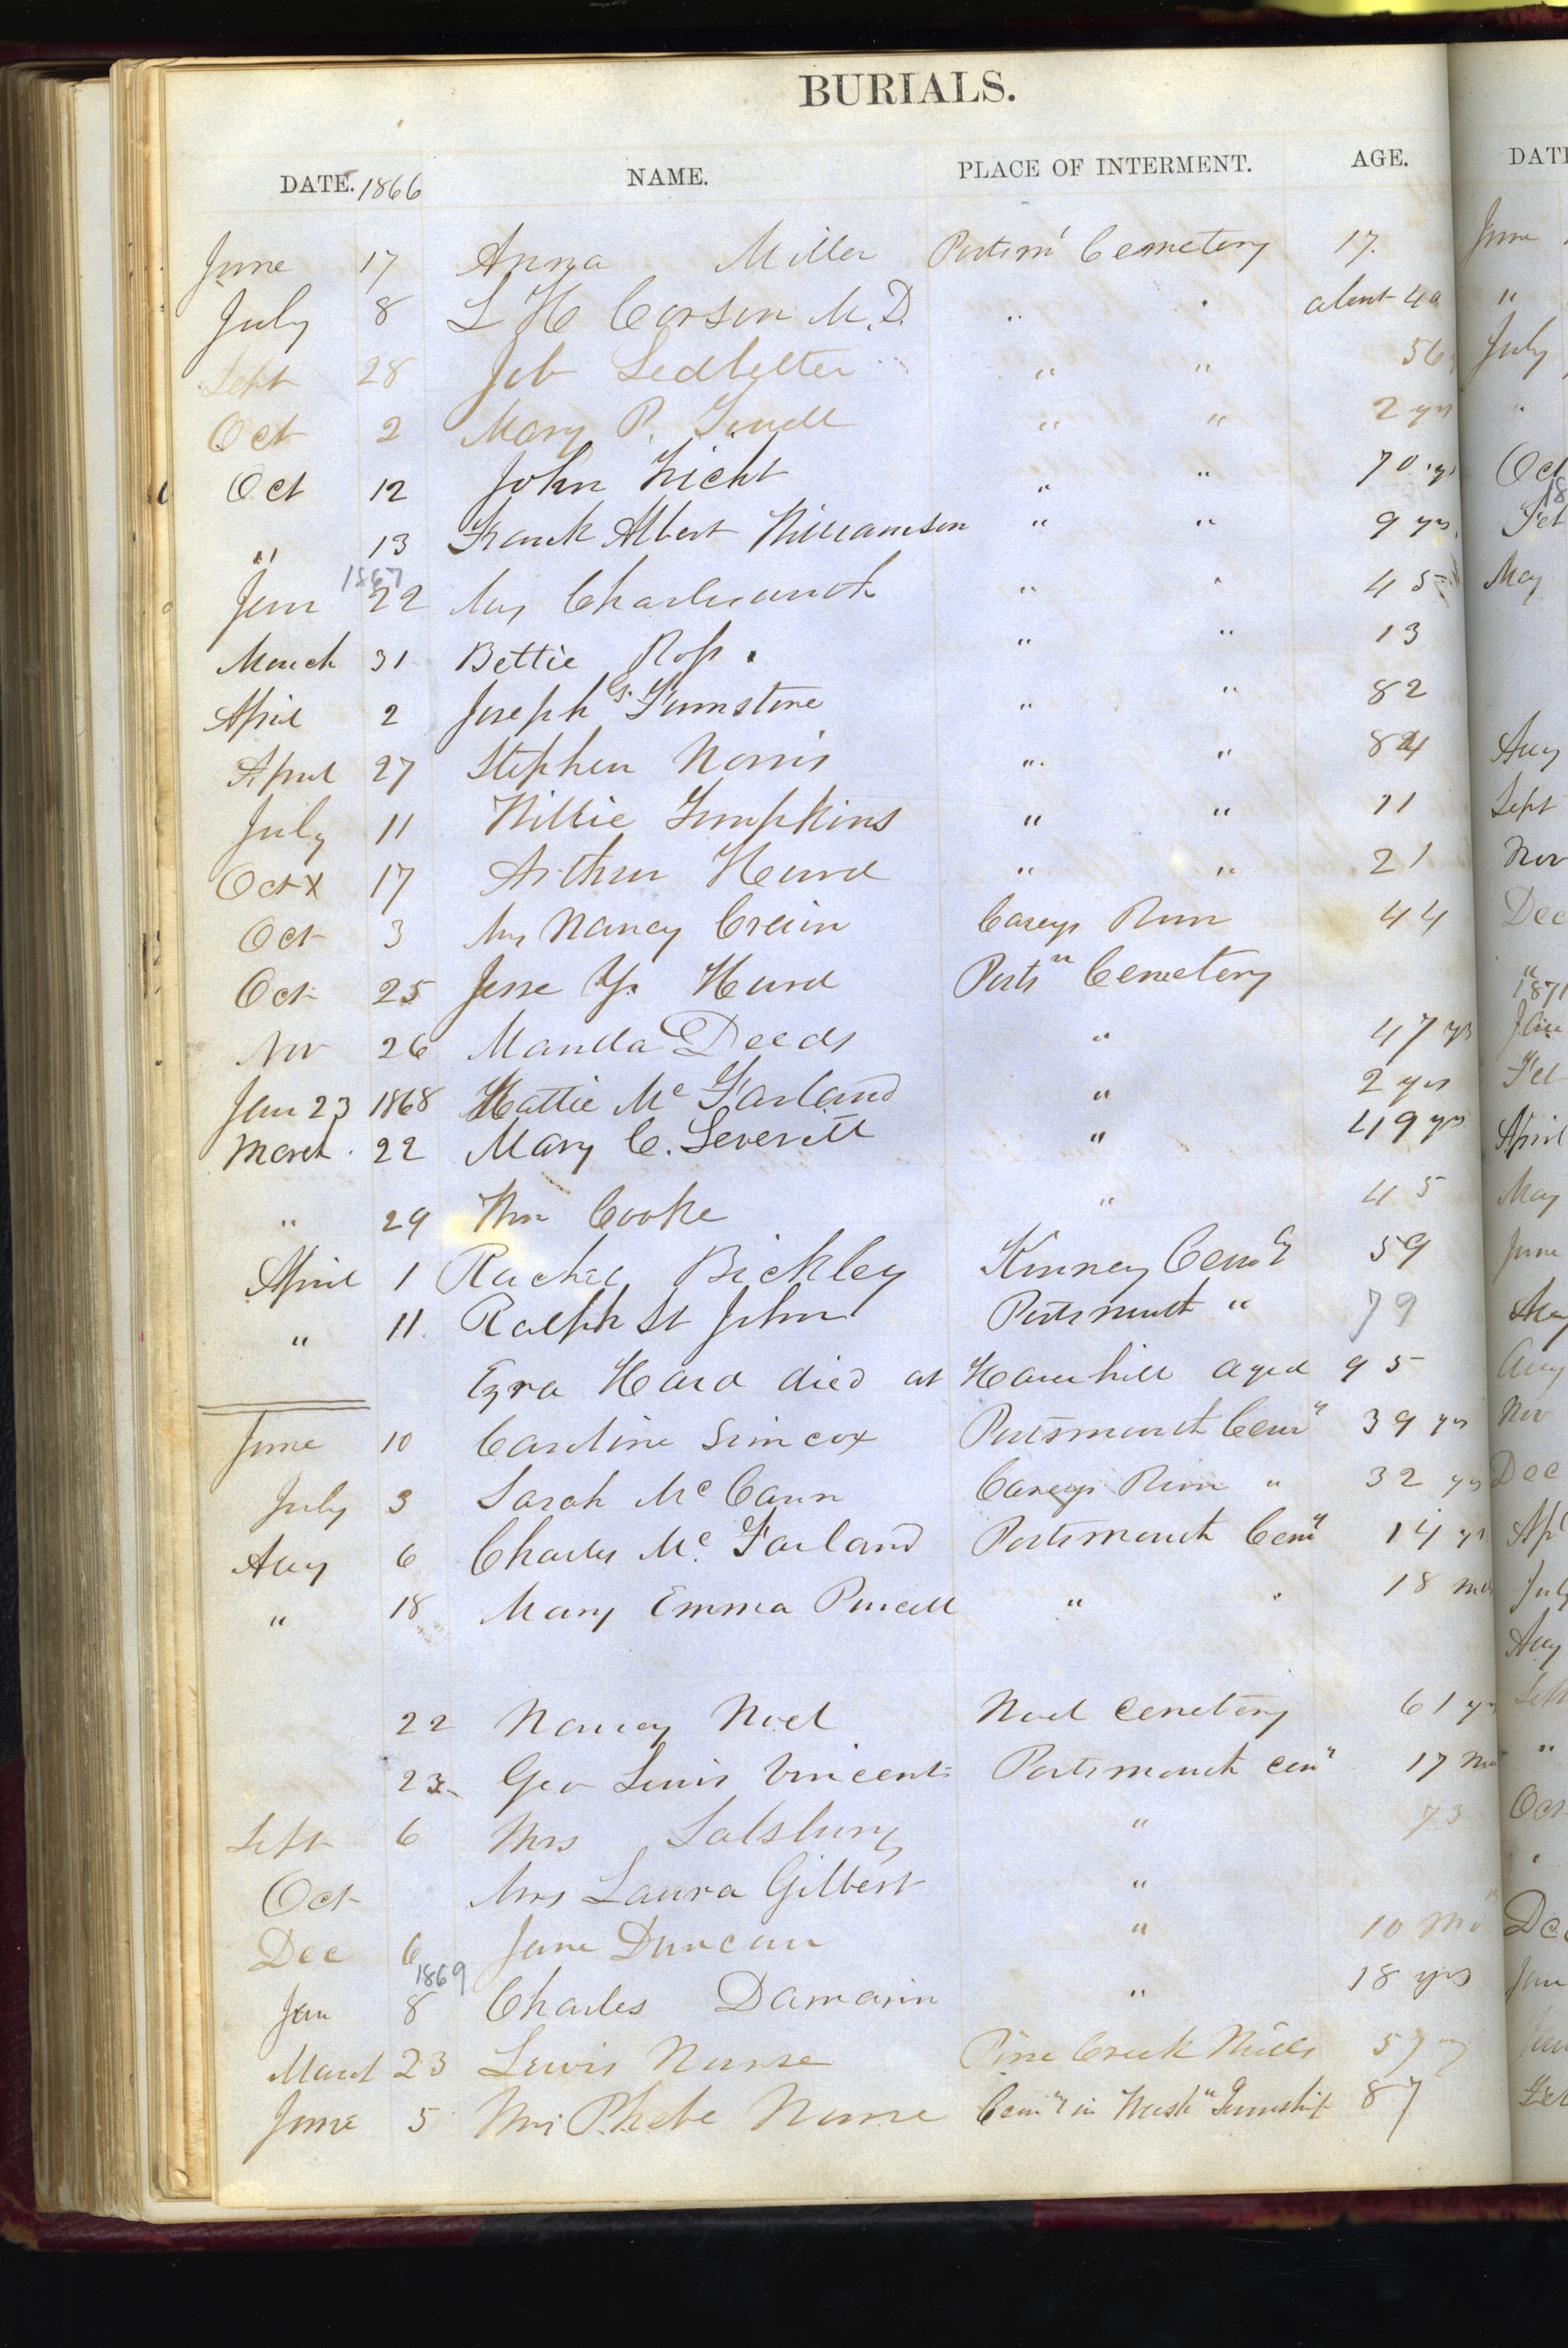 BURIALS.
DATE. 1866 NAME. PLACE OF INTERMENT. AGE.
June 17 Anna Miller Portsm' Cemetery 17.
July 8 L H Corson M.D. .. . about 40
Sept 28 Job Ledbetter " " 56
Oct 2 Mary P. " " 2 yrs
Oct 12 John Licht " " 70 yrs
" 13 Frank Albert Williamson " " 9 yrs.
1867
Jan 22 Mrs " " 45
March 31 Bettie Ross. " " 13
April 2 Joseph G. " " 82
April 27 Stephen Norris " " 84
July 11 Willie Tompkins " " 11
Oct x 17 Arthur Hurd " " 21
Oct 3 Mrs Nancy Crain Careys Run 44
Oct 25 Jesse Y. Hurd Ports" Cemetery
Nov 26 Manda Deeds " 47 yrs
Jan 23 1868 Hattie Mc Farland " 2 yrs
March. 22 Mary C. Leverett " 49 yrs
" 29 Wm Cooke " 45
April 1 Rachel Bickley Kinney Cemy 59
" 11. Ralph St John Portsmouth " 79
Ezra Hard died at Haverhill aged 95
June 10 Caroline Simcox Portsmouth Cemy 39 yrs
July 3 Sarah Mc Cann Careys Run " 32 yrs
Aug 6 Charles Mc. Farland Portsmouth Cemy 14 yrs
" 18 Mary Emma Purcell " . 18 mos
22 Nancy Noel Noel Cemetery 61 yrs
23 Geo Lewis Vincent Portsmouth Cemy 17 mos
Sept 6 Mrs Salsbury " 73
Oct Mrs Laura Gilbert "
Dec 6 Jane Duncan " 10 mo
1869
Jan 8 Charles Damarin " 18 yrs
March 23 Lewis Nurse Pine Creek Mills 57
June 5 Mrs Phebe Nurse Cemy in Wash" Township 87
DATE
June
"
July
"
Oct
Feb
May
Aug
Sept
Nov
Dec
"
1871
Jan
Feb
April
May
June
Aug
Nov
Dec
Apl
July
Aug
"
Oct
Dec
Jan